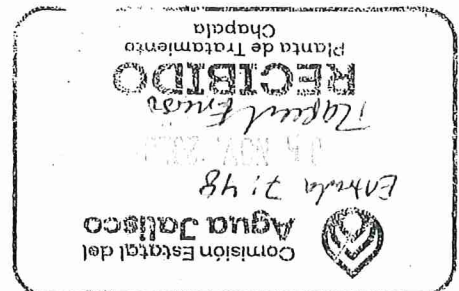 Comisión Estatal del
Agua Jalisco
Entrada 7:48
NOV. 
RECIBIDO
Planta de Tratamiento
Chapala